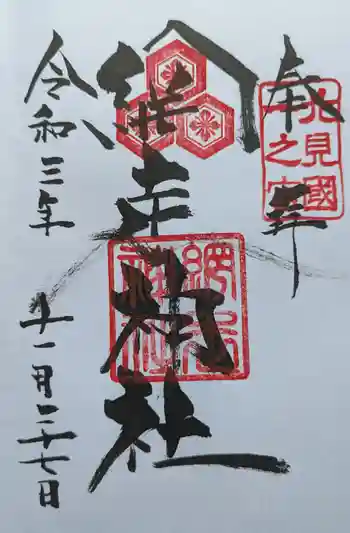 奉拝
北見國
一之宮
網走神社
網走
神社
令和三年
十一月二十七日